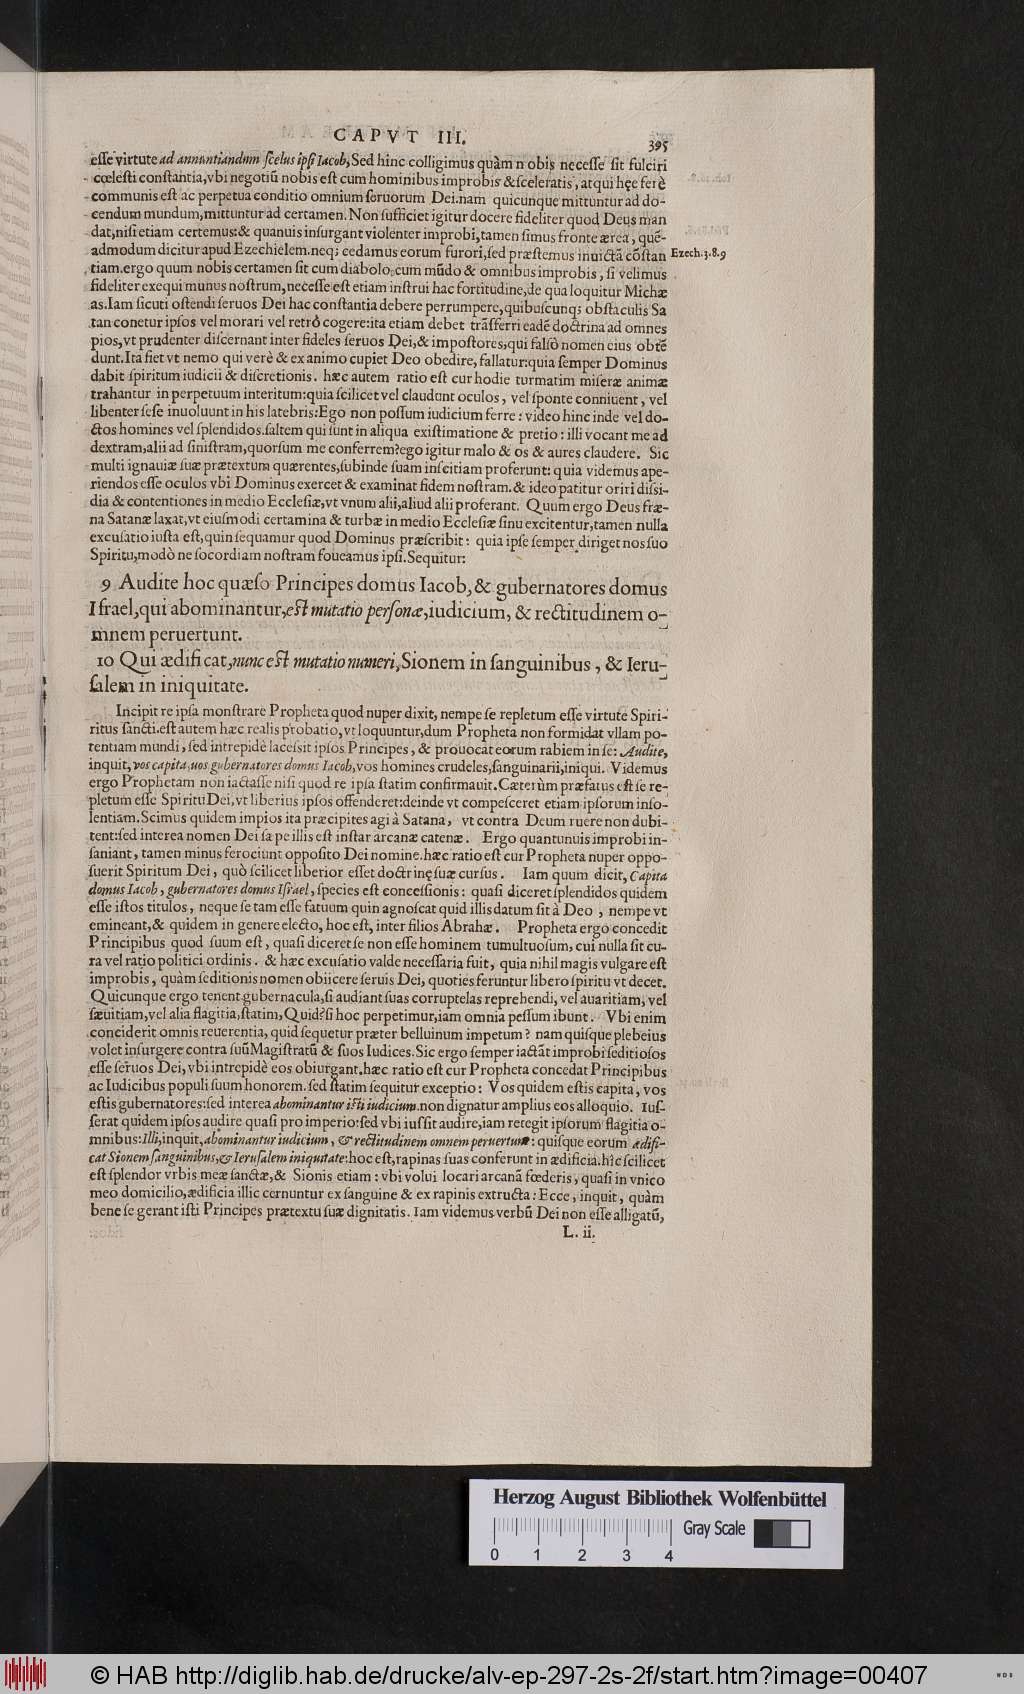 CAPVT III.
395
eſſe virtute ad annuntiandum ſcelus ipſi Iacob, Sed hinc colligimus quàm nobis neceſſe ſit fulciri
cœleſti conſtantia, vbi negotiū nobis eſt cum hominibus improbis & ſceleratis, atqui hęc ferè
communis eſt ac perpetua conditio omnium ſeruorum Dei. nam quicunque mittuntur ad do-
cendum mundum, mittuntur ad certamen. Non ſufficiet igitur docere fideliter quod Deus man
dat, niſi etiam certemus: & quanuis inſurgant violenter improbi, tamen ſimus fronte ærea, quē-
admodum dicitur apud Ezechielem. neq; cedamus eorum furori, ſed præſtemus inuictā cōſtan
Ezech.3.8.9
tiam. ergo quum nobis certamen ſit cum diabolo, cum mūdo & omnibus improbis, ſi velimus
fideliter exequi munus noſtrum, neceſſe eſt etiam inſtrui hac fortitudine, de qua loquitur Michæ
as. Iam ſicuti oſtendi ſeruos Dei hac conſtantia debere perrumpere, quibuſcunq; obſtaculis Sa
tan conetur ipſos vel morari vel retrò cogere: ita etiam debet trāſferri eadē doctrina ad omnes
pios, vt prudenter diſcernant inter fideles ſeruos Dei, & impoſtores, qui falſò nomen eius obtē
dunt. Ita fiet vt nemo qui verè & ex animo cupiet Deo obedire, fallatur: quia ſemper Dominus
dabit ſpiritum iudicii & diſcretionis. hæc autem ratio eſt cur hodie turmatim miſeræ animæ
trahantur in perpetuum interitum: quia ſcilicet vel claudunt oculos, vel ſponte conniuent, vel
libenter ſeſe inuoluunt in his latebris: Ego non poſſum iudicium ferre: video hinc inde vel do-
ctos homines vel ſplendidos. ſaltem qui ſunt in aliqua exiſtimatione & pretio: illi vocant me ad
dextram, alii ad ſiniſtram, quorſum me conferrem? ego igitur malo & os & aures claudere. Sic
multi ignauiæ ſuæ prætextum quærentes, ſubinde ſuam inſcitiam proferunt: quia videmus ape-
riendos eſſe oculos vbi Dominus exercet & examinat fidem noſtram. & ideo patitur oriri diſsi-
dia & contentiones in medio Eccleſiæ, vt vnum alii, aliud alii proferant. Quum ergo Deus fræ-
na Satanæ laxat, vt eiuſmodi certamina & turbæ in medio Eccleſiæ ſinu excitentur, tamen nulla
excuſatio iuſta eſt, quin ſequamur quod Dominus præſcribit: quia ipſe ſemper diriget nos ſuo
Spiritu, modò ne ſocordiam noſtram foueamus ipſi. Sequitur:
9 Audite hoc quæſo Principes domus Iacob, & gubernatores domus
Iſrael, qui abominantur, eſt mutatio perſonæ, iudicium, & rectitudinem o-
mnem peruertunt.
10 Qui ædificat, nunc eſt mutatio numeri, Sionem in ſanguinibus, & Ieru-
ſalem in iniquitate.
Incipit re ipſa monſtrare Propheta quod nuper dixit, nempe ſe repletum eſſe virtute Spiri-
ritus ſancti. eſt autem hæc realis probatio, vt loquuntur, dum Propheta non formidat vllam po-
tentiam mundi, ſed intrepidè laceſsit ipſos Principes, & prouocat eorum rabiem in ſe: Audite,
inquit, vos capita, uos gubernatores domus Iacob, vos homines crudeles, ſanguinarii, iniqui. Videmus
ergo Prophetam non iactaſſe niſi quod re ipſa ſtatim confirmauit. Cæterùm præfatus eſt ſe re-
pletum eſſe Spiritu Dei, vt liberius ipſos offenderet: deinde vt compeſceret etiam ipſorum inſo-
lentiam. Scimus quidem impios ita præcipites agi à Satana, vt contra Deum ruere non dubi-
tent: ſed interea nomen Dei ſæpe illis eſt inſtar arcanæ catenæ. Ergo quantunuis improbi in-
ſaniant, tamen minus ferociunt oppoſito Dei nomine. hæc ratio eſt cur Propheta nuper oppo-
ſuerit Spiritum Dei, quò ſcilicet liberior eſſet doctrinę ſuæ curſus. Iam quum dicit, Capita
domus Iacob, gubernatores domus Iſrael, ſpecies eſt conceſſionis: quaſi diceret ſplendidos quidem
eſſe iſtos titulos, neque ſe tam eſſe fatuum quin agnoſcat quid illis datum ſit à Deo, nempe vt
emineant, & quidem in genere electo, hoc eſt, inter filios Abrahæ. Propheta ergo concedit
Principibus quod ſuum eſt, quaſi diceret ſe non eſſe hominem tumultuoſum, cui nulla ſit cu-
ra vel ratio politici ordinis. & hæc excuſatio valde neceſſaria fuit, quia nihil magis vulgare eſt
improbis, quàm ſeditionis nomen obiicere ſeruis Dei, quoties feruntur libero ſpiritu vt decet.
Quicunque ergo tenent gubernacula, ſi audiant ſuas corruptelas reprehendi, vel auaritiam, vel
ſæuitiam, vel alia flagitia, ſtatim, Quid? ſi hoc perpetimur, iam omnia peſſum ibunt. Vbi enim
conciderit omnis reuerentia, quid ſequetur præter belluinum impetum? nam quiſque plebeius
volet inſurgere contra ſuū Magiſtratū & ſuos Iudices. Sic ergo ſemper iactāt improbi ſeditioſos
eſſe ſeruos Dei, vbi intrepidè eos obiurgant. hæc ratio eſt cur Propheta concedat Principibus
ac Iudicibus populi ſuum honorem. ſed ſtatim ſequitur exceptio: Vos quidem eſtis capita, vos
eſtis gubernatores: ſed interea abominantur iſti iudicium. non dignatur amplius eos alloquio. Iuſ-
ſerat quidem ipſos audire quaſi pro imperio: ſed vbi iuſſit audire, iam retegit ipſorum flagitia o-
mnibus: Illi, inquit, abominantur iudicium, & rectitudinem omnem peruertunt: quiſque eorum ædifi-
cat Sionem ſanguinibus, & Ieruſalem iniquitate: hoc eſt, rapinas ſuas conferunt in ædificia. hîc ſcilicet
eſt ſplendor vrbis meæ ſanctæ, & Sionis etiam: vbi volui locari arcanā fœderis, quaſi in vnico
meo domicilio, ædificia illic cernuntur ex ſanguine & ex rapinis extructa: Ecce, inquit, quàm
bene ſe gerant iſti Principes prætextu ſuæ dignitatis. Iam videmus verbū Dei non eſſe alligatū,
L. ii.
Herzog August Bibliothek Wolfenbüttel
Gray Scale
0 1 2 3 4
© HAB http://diglib.hab.de/drucke/alv-ep-297-2s-2f/start.htm?image=00407